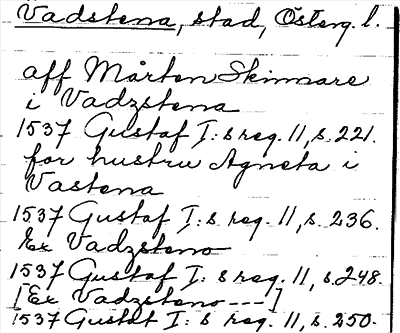 Vadstena, stad, Österg. l.
aff Mårten Skinnare
i Vadzstena
1537 Gustaf I:s reg. 11, s. 221.
for hustru Agneta i
Vastena
1537 Gustaf I:s reg. 11, s. 236.
Ex Vadzsteno
1537 Gustaf I:s reg. 11, s. 248.
[Ex Vadzsteno ---]
1537 Gustaf I:s reg. 11, s. 250.